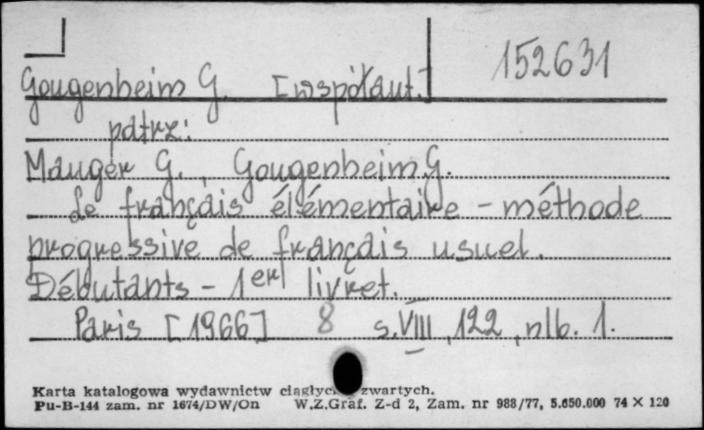 152631
Gougenheim G. [współaut.]
patrz:
Mauger G., Gougenheim G.
Le français élémentaire - méthode
progressive de français usuel.
Débutants - 1er livret.
Paris [1966] 8 s. VIII, 122, nlb. 1.
Karta katalogowa wydawnictw ciągłych zwartych.
Pu-B-144 zam. nr 1674/DW/On W.Z.Graf. Z-d 2, Zam. nr 988/77, 5.650.000 74 X 120